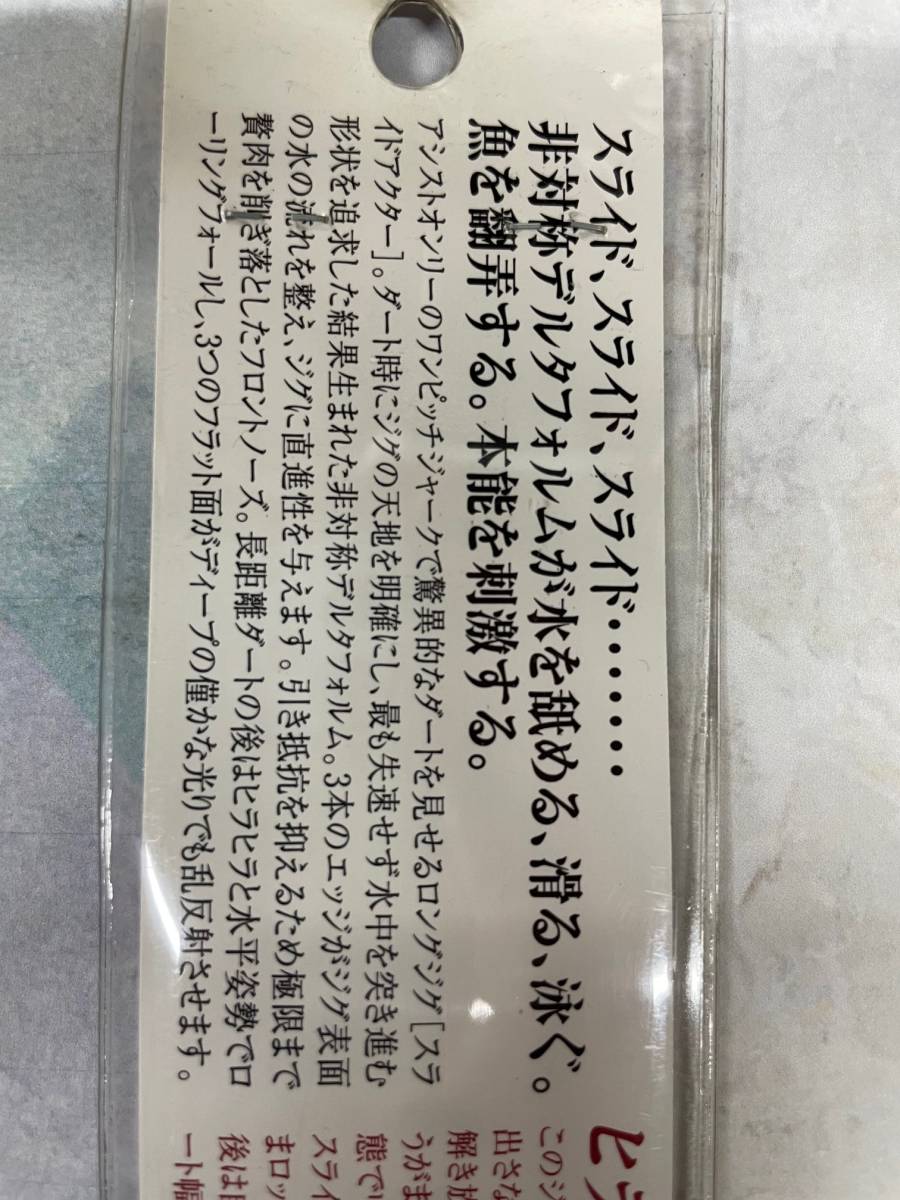 スライド、スライド、スライド・・・・・・
非対称デルタフォルムが水を舐める、滑る、泳ぐ。
魚を翻弄する。本能を刺激する。
アシストオンリーのワンピッチジャークで驚異的なダートを見せるロングジグ[スラ
イドアクター]。ダート時にジグの天地を明確にし、最も失速せず水中を突き進む
形状を追求した結果生まれた非対称デルタフォルム。3本のエッジがジグ表面
の水の流れを整え、ジグに直進性を与えます。引き抵抗を抑えるため極限まで
贅肉を削ぎ落としたフロントノーズ。長距離ダートの後はヒラヒラと水平姿勢でロ
ーリングフォールし、3つのフラット面がディープの僅かな光りでも乱反射させます。
ヒラ
このジ
出さな
解き放
うがま
態で
スライ
まロッ
後は
ート幅